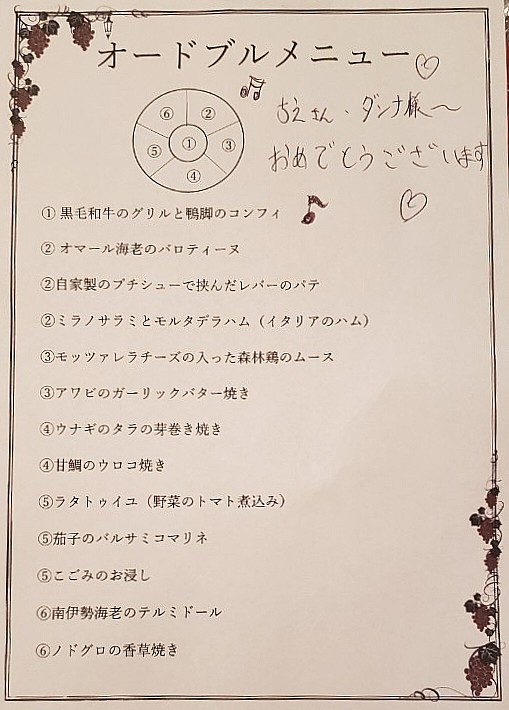 オードブルメニュー
ちえさん・ダンナ様〜
おめでとうございます
⑥ ②
① ③
⑤
④
① 黒毛和牛のグリルと鴨脚のコンフィ
② オマール海老のバロティーヌ
②自家製のプチシューで挟んだレバーのパテ
②ミラノサラミとモルタデラハム（イタリアのハム）
③モッツァレラチーズの入った森林鶏のムース
③アワビのガーリックバター焼き
④ウナギのタラの芽巻き焼き
④甘鯛のウロコ焼き
⑤ラタトゥイユ（野菜のトマト煮込み）
⑤茄子のバルサミコマリネ
⑤こごみのお浸し
⑥南伊勢海老のテルミドール
⑥ノドグロの香草焼き